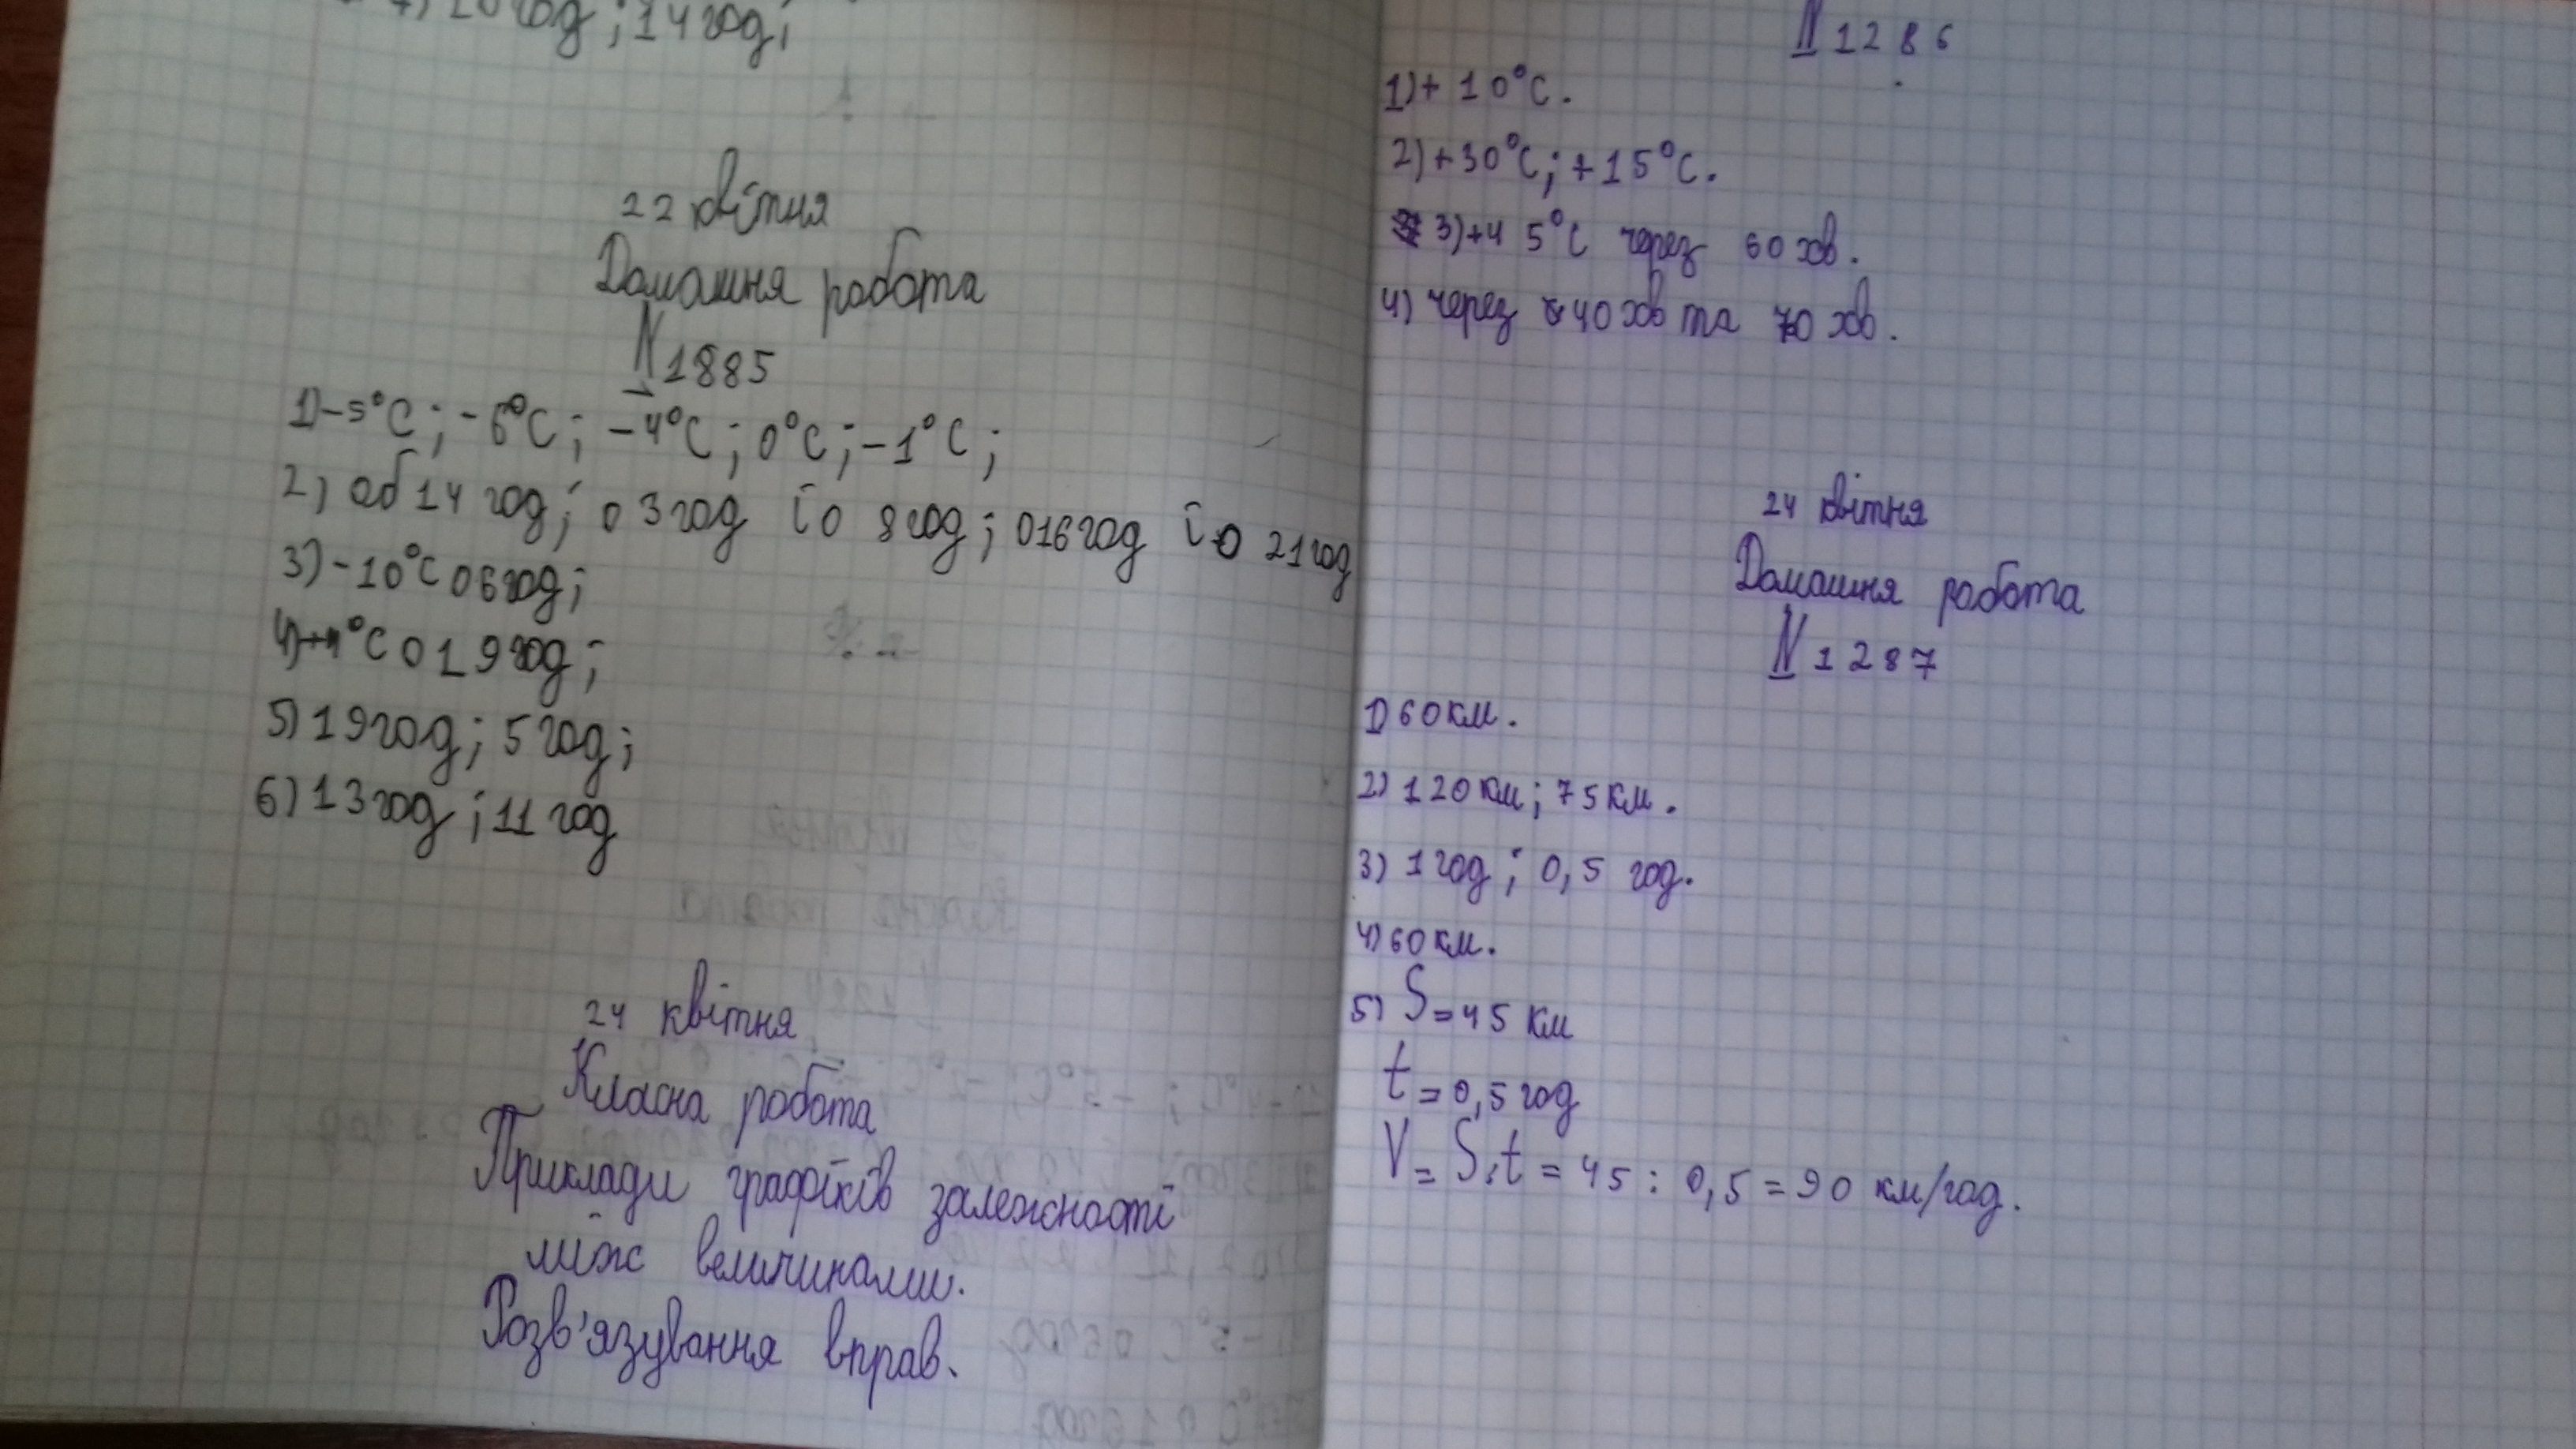 7) 10 год; 14 год;
22 квітня
Домашня робота
№ 1885
1) -5°C; -6°C; -4°C; 0°C; -1°C;
2) об 14 год; о 3 год і о 8 год; о 16 год і о 21 год
3) -10°C о 6 год;
4) +4°C о 19 год;
5) 19 год; 5 год;
6) 13 год; 11 год
24 квітня
Класна робота
Приклади графіків залежності
між величинами.
Розв'язування вправ.
№ 1286
1) + 10°C.
2) +30°C; +15°C.
3) +45°C через 60 хв.
4) через 40 хв та 70 хв.
24 квітня
Домашня робота
№ 1287
1) 60 км.
2) 120 км; 75 км.
3) 1 год; 0,5 год.
4) 60 км.
5) S = 45 км
t = 0,5 год
V = S:t = 45 : 0,5 = 90 км/год.